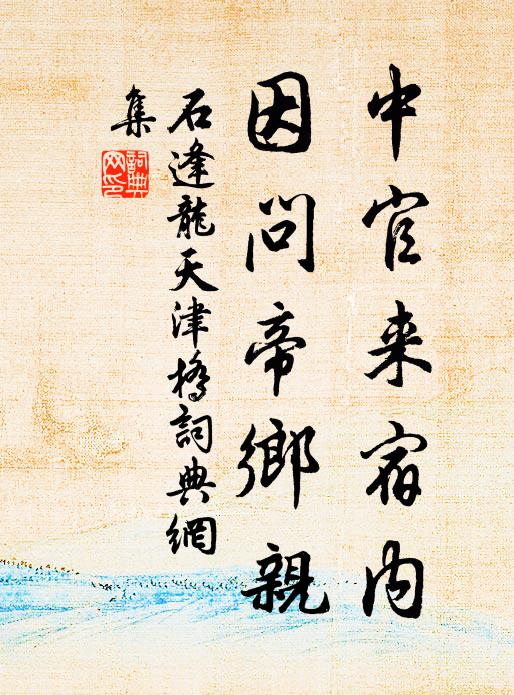 中官来宿内
因问帝鄉親
石逢龍天津橋詞典網
集
詞典
网印